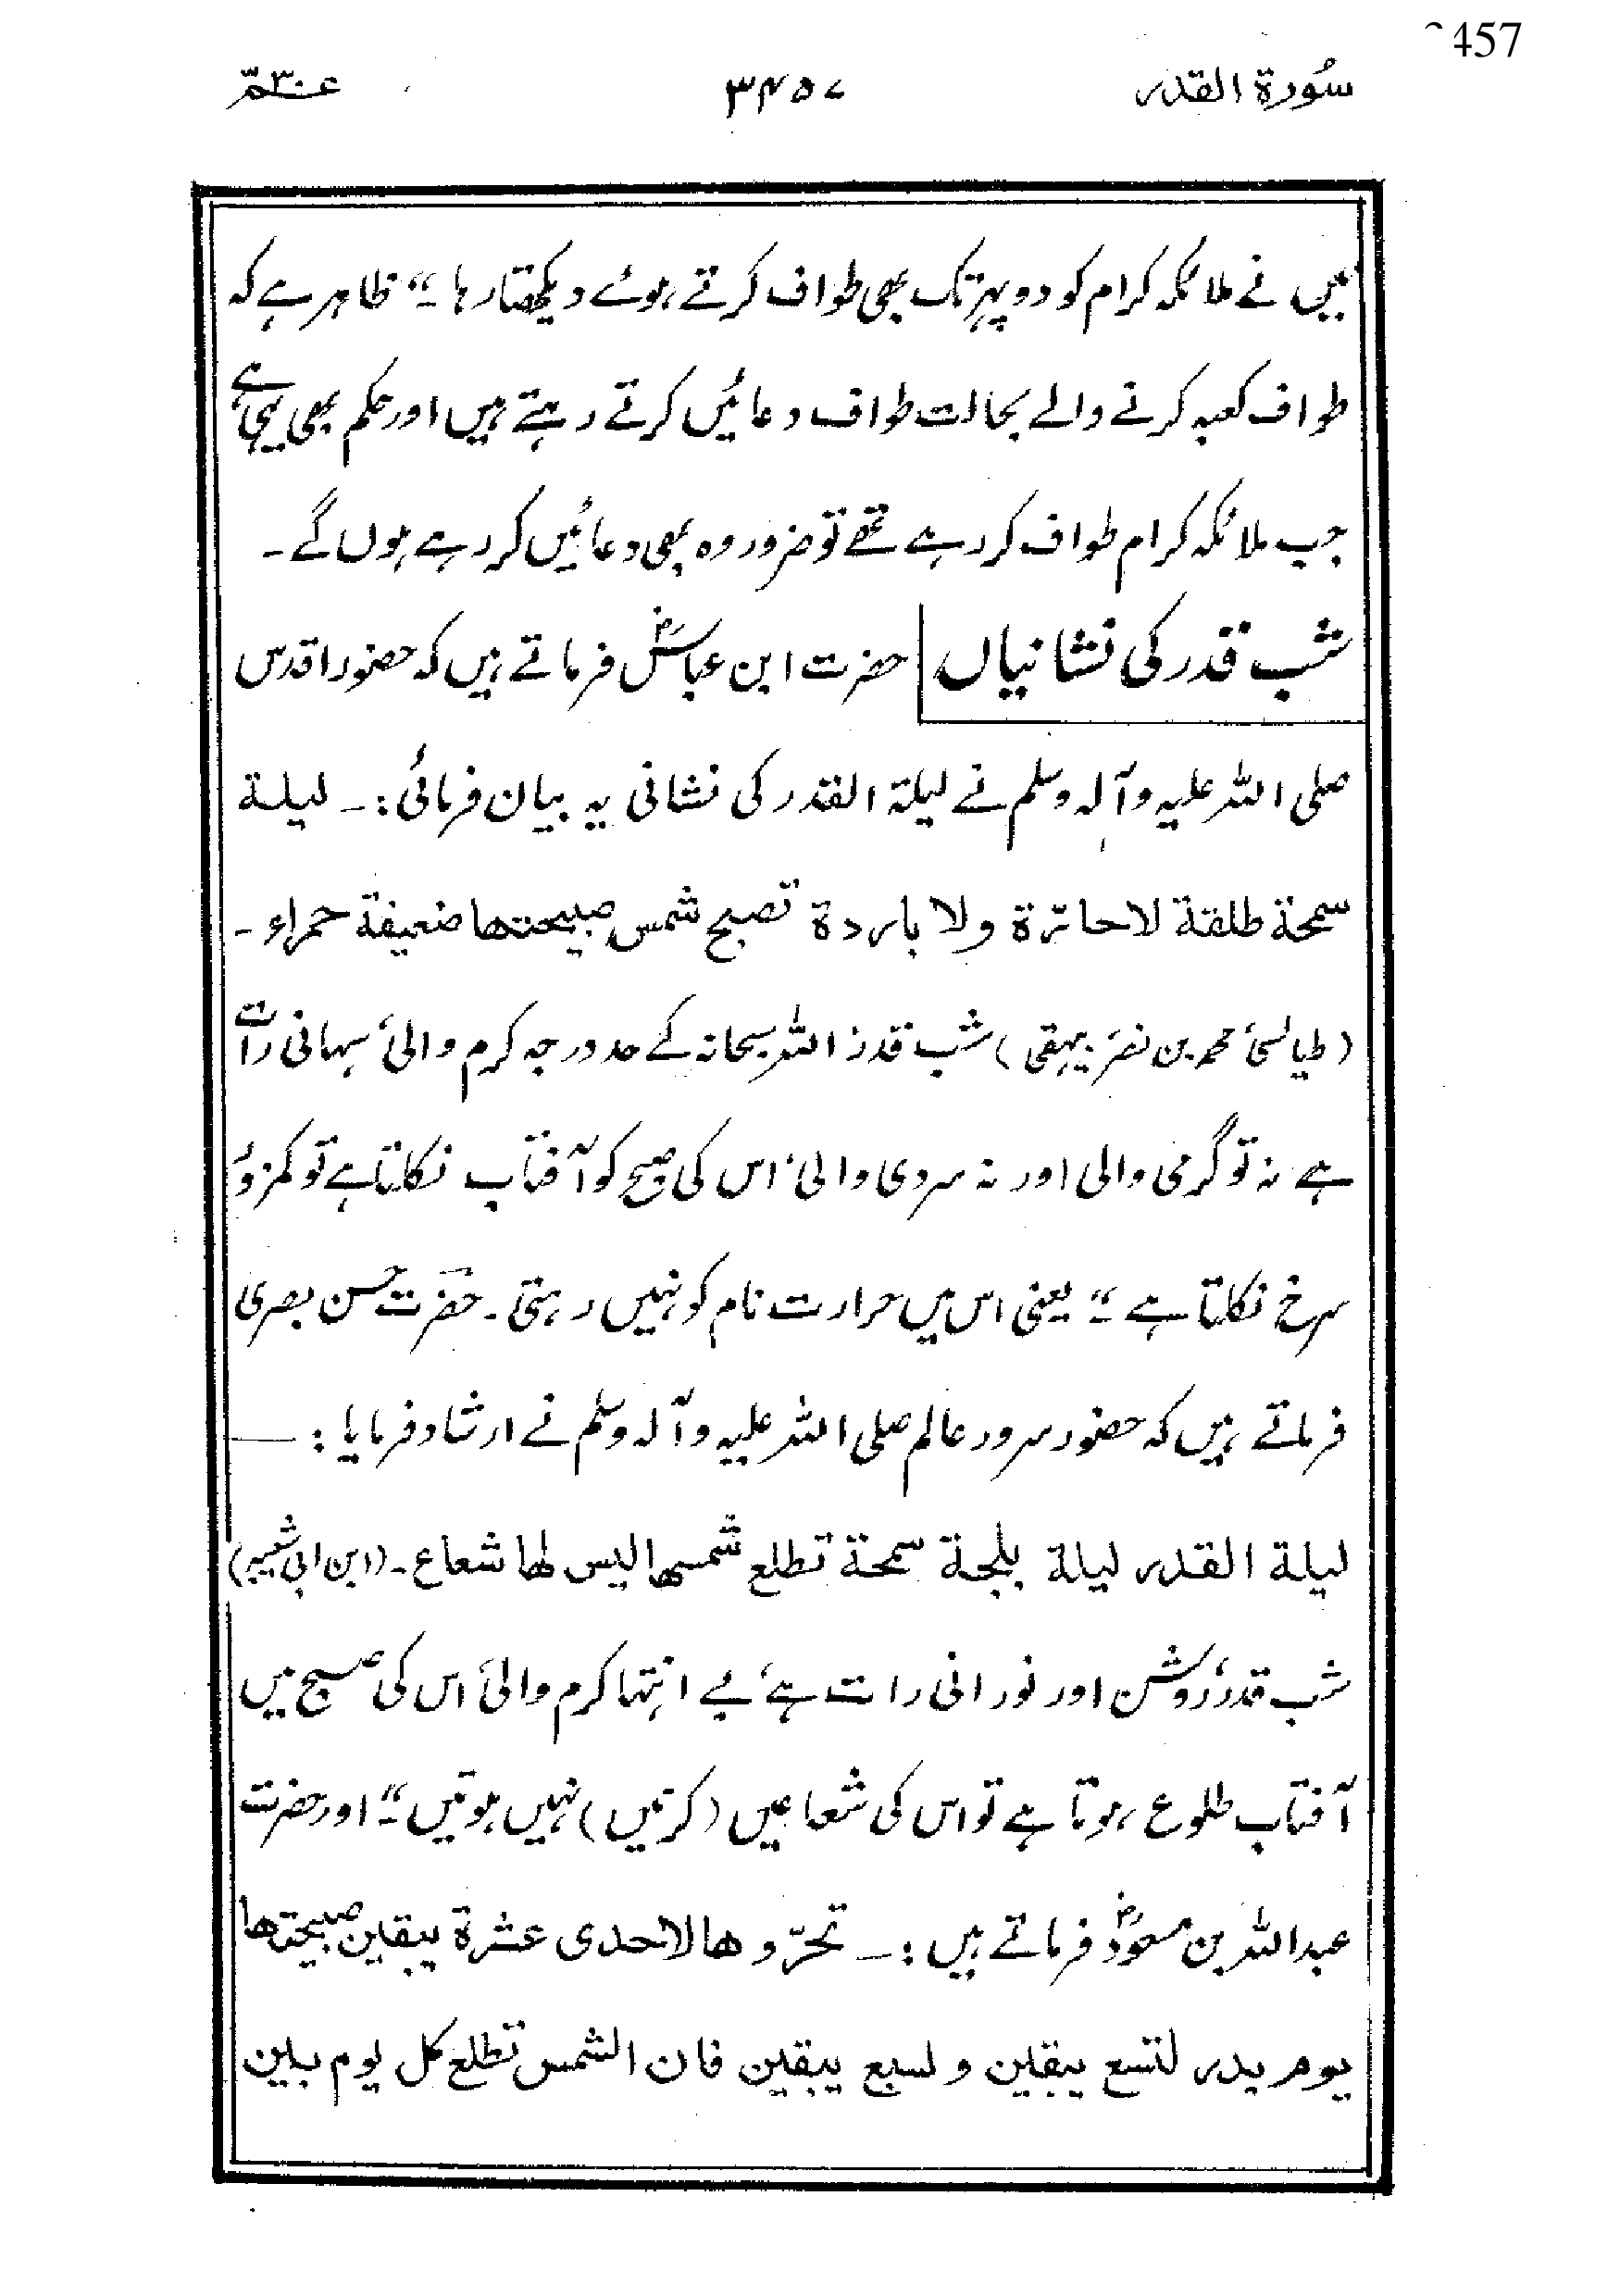 457
سُورة القدر ۳۴۵۷ عمّ ۳۰
میں نے ملائکہ کرام کو دوپہر تک بھی طواف کرتے ہوئے دیکھتا رہا۔“ ظاہر ہے کہ
طواف کعبہ کرنے والے بحالت طواف دعائیں کرتے رہتے ہیں اور حکم بھی یہی ہے
جب ملائکہ کرام طواف کر رہے تھے تو ضرور وہ بھی دعائیں کر رہے ہوں گے۔
شب قدر کی نشانیاں حضرت ابن عباسؓ فرماتے ہیں کہ حضور اقدس
صلی اللہ علیہ وآلہ وسلم نے لیلۃ القدر کی نشانی یہ بیان فرمائی :۔ لیلة
سمحة طلقة لا حاترة ولا باردة تصبح شمس صبیحتها ضعیفة حمراء۔
(طیالسی، محمد بن نصر، بیہقی) شب قدر، اللہ سبحانہ کے حد درجہ کرم والی، سہانی رات
ہے نہ تو گرمی والی اور نہ سردی والی، اس کی صبح کو آفتاب نکلتا ہے تو کمزور،
سرخ نکلتا ہے۔“ یعنی اس میں حرارت نام کو نہیں رہتی۔ حضرت حسن بصری
فرماتے ہیں کہ حضور سرور عالم صلی اللہ علیہ وآلہ وسلم نے ارشاد فرمایا :—
لیلة القدر لیلة بلجة سمحة تطلع شمسها لیس لها شعاع۔ (ابن ابی شیبہ)
شب قدر، روشن اور نورانی رات ہے، بے انتہا کرم والی، اس کی صبح میں
آفتاب طلوع ہوتا ہے تو اس کی شعاعیں (کرنیں) نہیں ہوتیں۔“ اور حضرت
عبداللہ بن مسعودؓ فرماتے ہیں :۔ تحرّوها لاحدی عشرة یبقین صبیحتها
یوم بدر لتسع یبقین ولسبع یبقین فان الشمس تطلع کل یوم بین